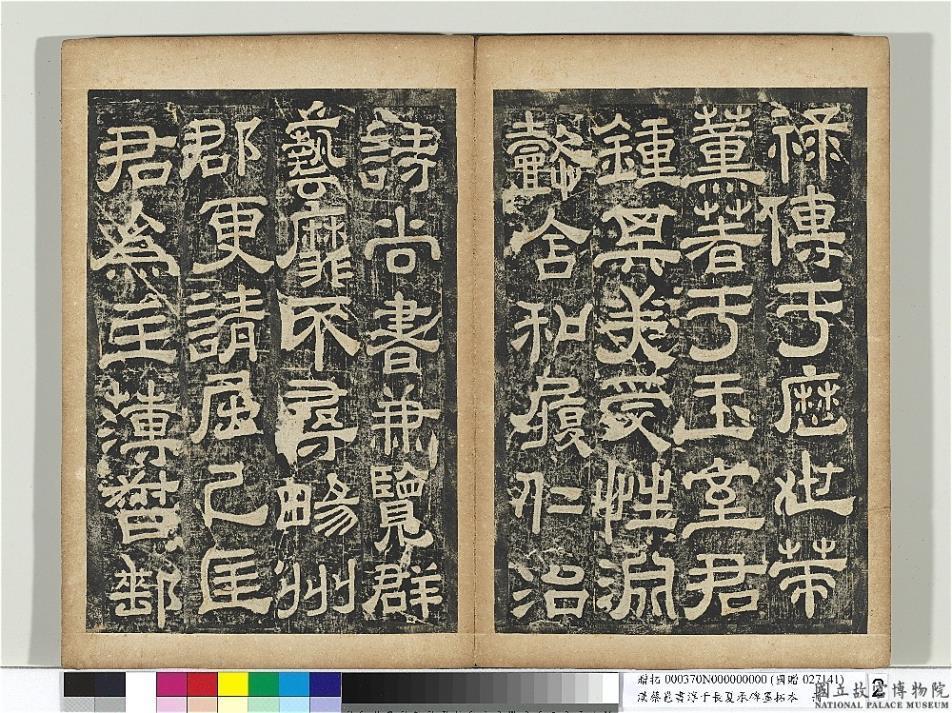 祿傳于歷世策
薰著于王室君
鍾其美受性淵
懿含和履仁治
詩尚書兼覽群
藝靡不尋暢州
郡更請屈己匡
君為主簿督郵
贈拓 000370N000000000 (國贈 027141) 2
漢蔡邕書淳于長夏承碑墨拓本
國立故宮博物院
NATIONAL PALACE MUSEUM